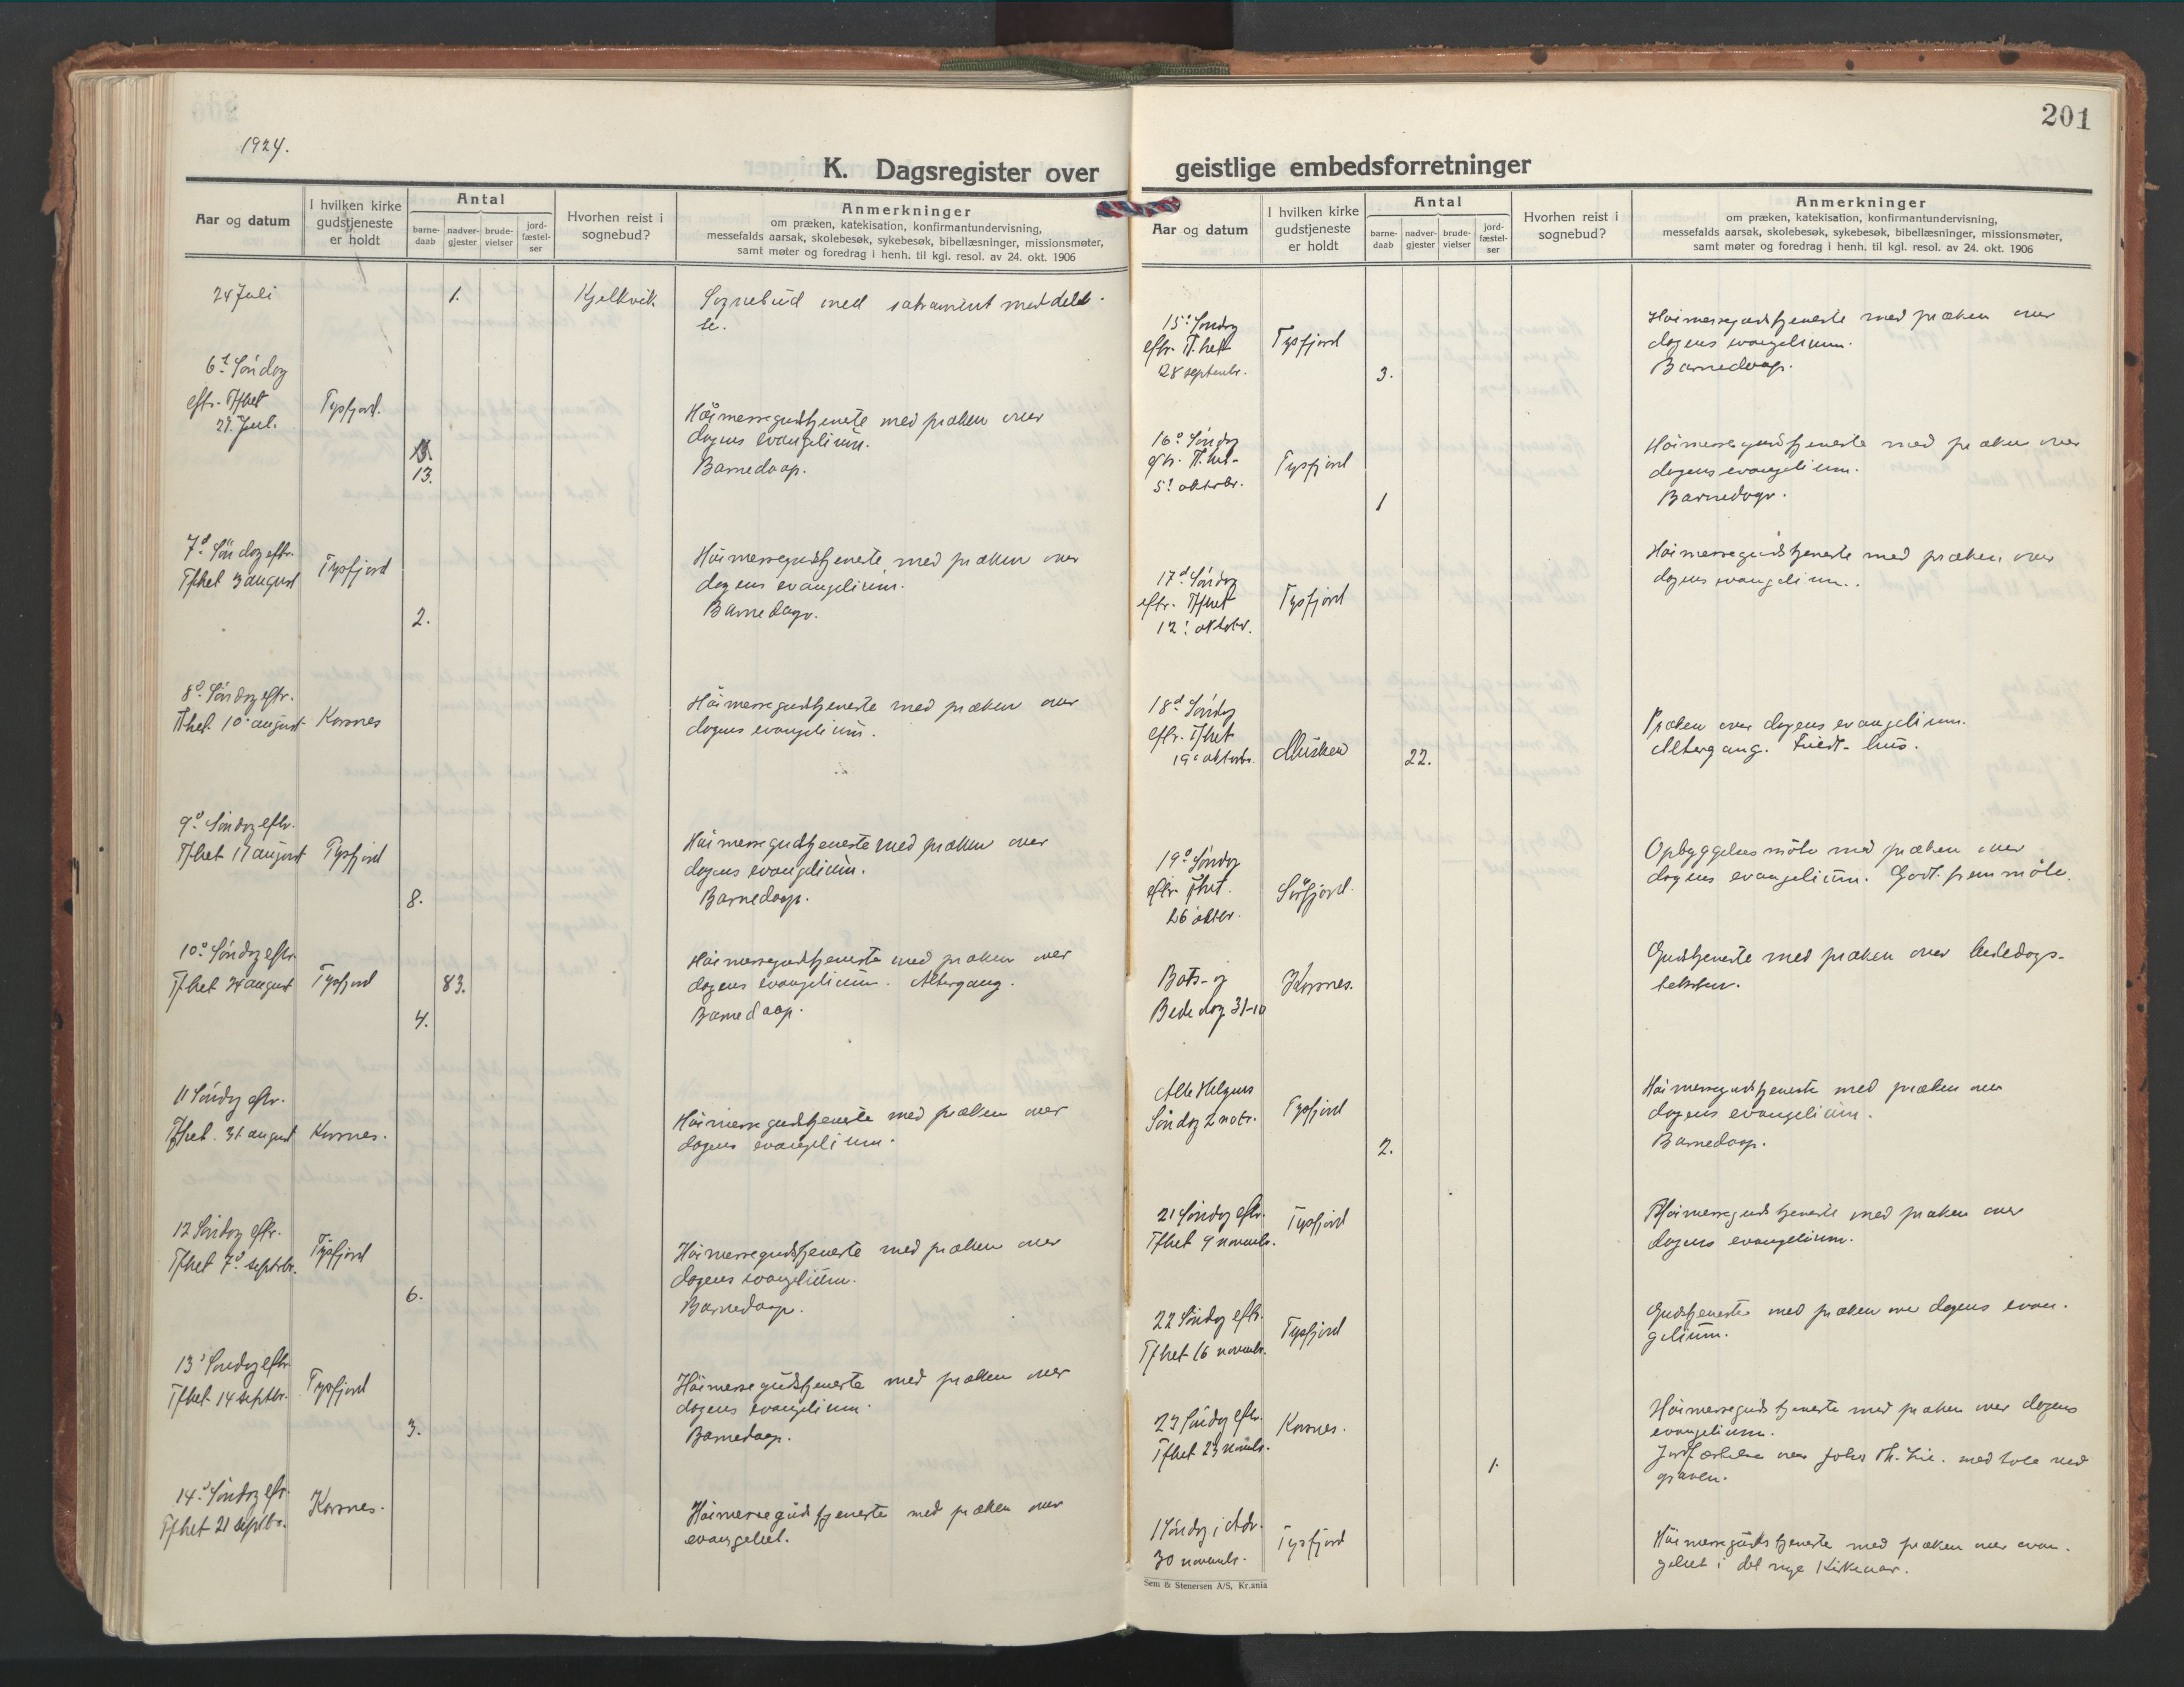 201
1924.
K. Dagsregister over geistlige embedsforretninger
Aar og datum
I hvilken kirke
gudstjeneste
er holdt
Antal
barne-
daab
nadver-
gjester
brude-
vielser
jord-
fæstel-
ser
Hvorhen reist i
sognebud?
Anmerkninger
om præken, katekisation, konfirmantundervisning,
messefalds aarsak, skolebesøk, sykebesøk, bibellæsninger, missionsmøter,
samt møter og foredrag i henh. til kgl. resol. av 24. okt. 1906
24 Juli 1. Kjelkvik Sognebud med sakrament meddelel-
se.
6t Söndag
eftr. Tfhet
27. Jul.
Tysfjord.
13.
Höimessegudstjeneste med præken over
dagens evangelium.
Barnedaap.
7d Söndag eftr.
Tfhet 3 august
Tysfjord
2.
Höimessegudstjeneste med præken over
dagens evangelium.
Barnedaap.
8d Söndag eftr.
Tfhet. 10. august
Korsnes
Höimessegudstjeneste med præken over
dagens evangelium.
9d Söndag eftr.
Tfhet 17 august
Tysfjord
8.
Höimessegudstjeneste med præken over
dagens evangelium.
Barnedaap.
10d Söndag eftr.
Tfhet 24 august
Tysfjord
83.
4.
Höimessegudstjeneste med præken over
dagens evangelium. Altergang.
Barnedaap.
11 Söndag eftr.
Tfhet. 31 august
Korsnes.
Höimessegudstjeneste med præken over
dagens evangelium.
12 Söndag eftr.
Tfhet 7d septbr.
Tysfjord
6.
Höimessegudstjeneste med præken over
dagens evangelium.
Barnedaap.
13d Söndag eftr
Tfhet 14 septbr.
Tysfjord
3.
Höimessegudstjeneste med præken over
dagens evangelium.
Barnedaap.
14d Söndag eftr.
Tfhet 21 septbr.
Korsnes.
Höimessegudstjeneste med præken over
evangeliet.
Aar og datum
I hvilken kirke
gudstjeneste
er holdt
Antal
barne-
daab
nadver-
gjester
brude-
vielser
jord-
fæstel-
ser
Hvorhen reist i
sognebud?
Anmerkninger
om præken, katekisation, konfirmantundervisning,
messefalds aarsak, skolebesøk, sykebesøk, bibellæsninger, missionsmøter,
samt møter og foredrag i henh. til kgl. resol. av 24. okt. 1906
15d Söndag
eftr. Tf.het
28 septembr.
Tysfjord
3.
Höimessegudstjeneste med præken over
dagens evangelium.
Barnedaap.
16d Söndag
eftr. Tf.het
5d oktobr.
Tysfjord
1
Höimessegudstjeneste med præken over
dagens evangelium.
Barnedaap.
17d Söndag
eftr. Tfhet
12d oktobr.
Tysfjord
Höimessegudstjeneste med præken over
dagens evangelium.
18d Söndag
eftr. Tfhet
19d oktobr.
Musken
22.
Præken over dagens evangelium.
Altergang. hus.
19d Söndag
eftr. Tfhet.
26 oktbr.
Sörfjord.
Opbyggelsesmöte med præken over
dagens evangelium. Godt fremmöte.
Bots- og
Bededag 31-10
Korsnes.
Gudstjeneste med præken over bededags-
teksten.
Alle Helgens
Söndag 2 novbr.
Tysfjord
2.
Höimessegudstjeneste med præken over
dagens evangelium.
Barnedaap.
21 Söndag eftr.
Tfhet 9 novembr.
Tysfjord
Höimessegudstjeneste med præken over
dagens evangelium.
22 Söndag eftr.
Tfhet 16 novembr.
Tysfjord
Gudstjeneste med præken over dagens evan-
gelium.
23 Söndag eftr.
Tfhet 23 novembr.
Korsnes.
1.
Höimessegudstjeneste med præken over dagens
evangelium.
Jordfæstelse over Th. Lie. med tale ved
graven.
1 Söndag i Adv.
30 novembr.
Tysfjord
Höimessegudstjeneste med præken over evan-
geliet i det nye Kirkeaar.
Sem & Stenersen A/S, Kr.ania